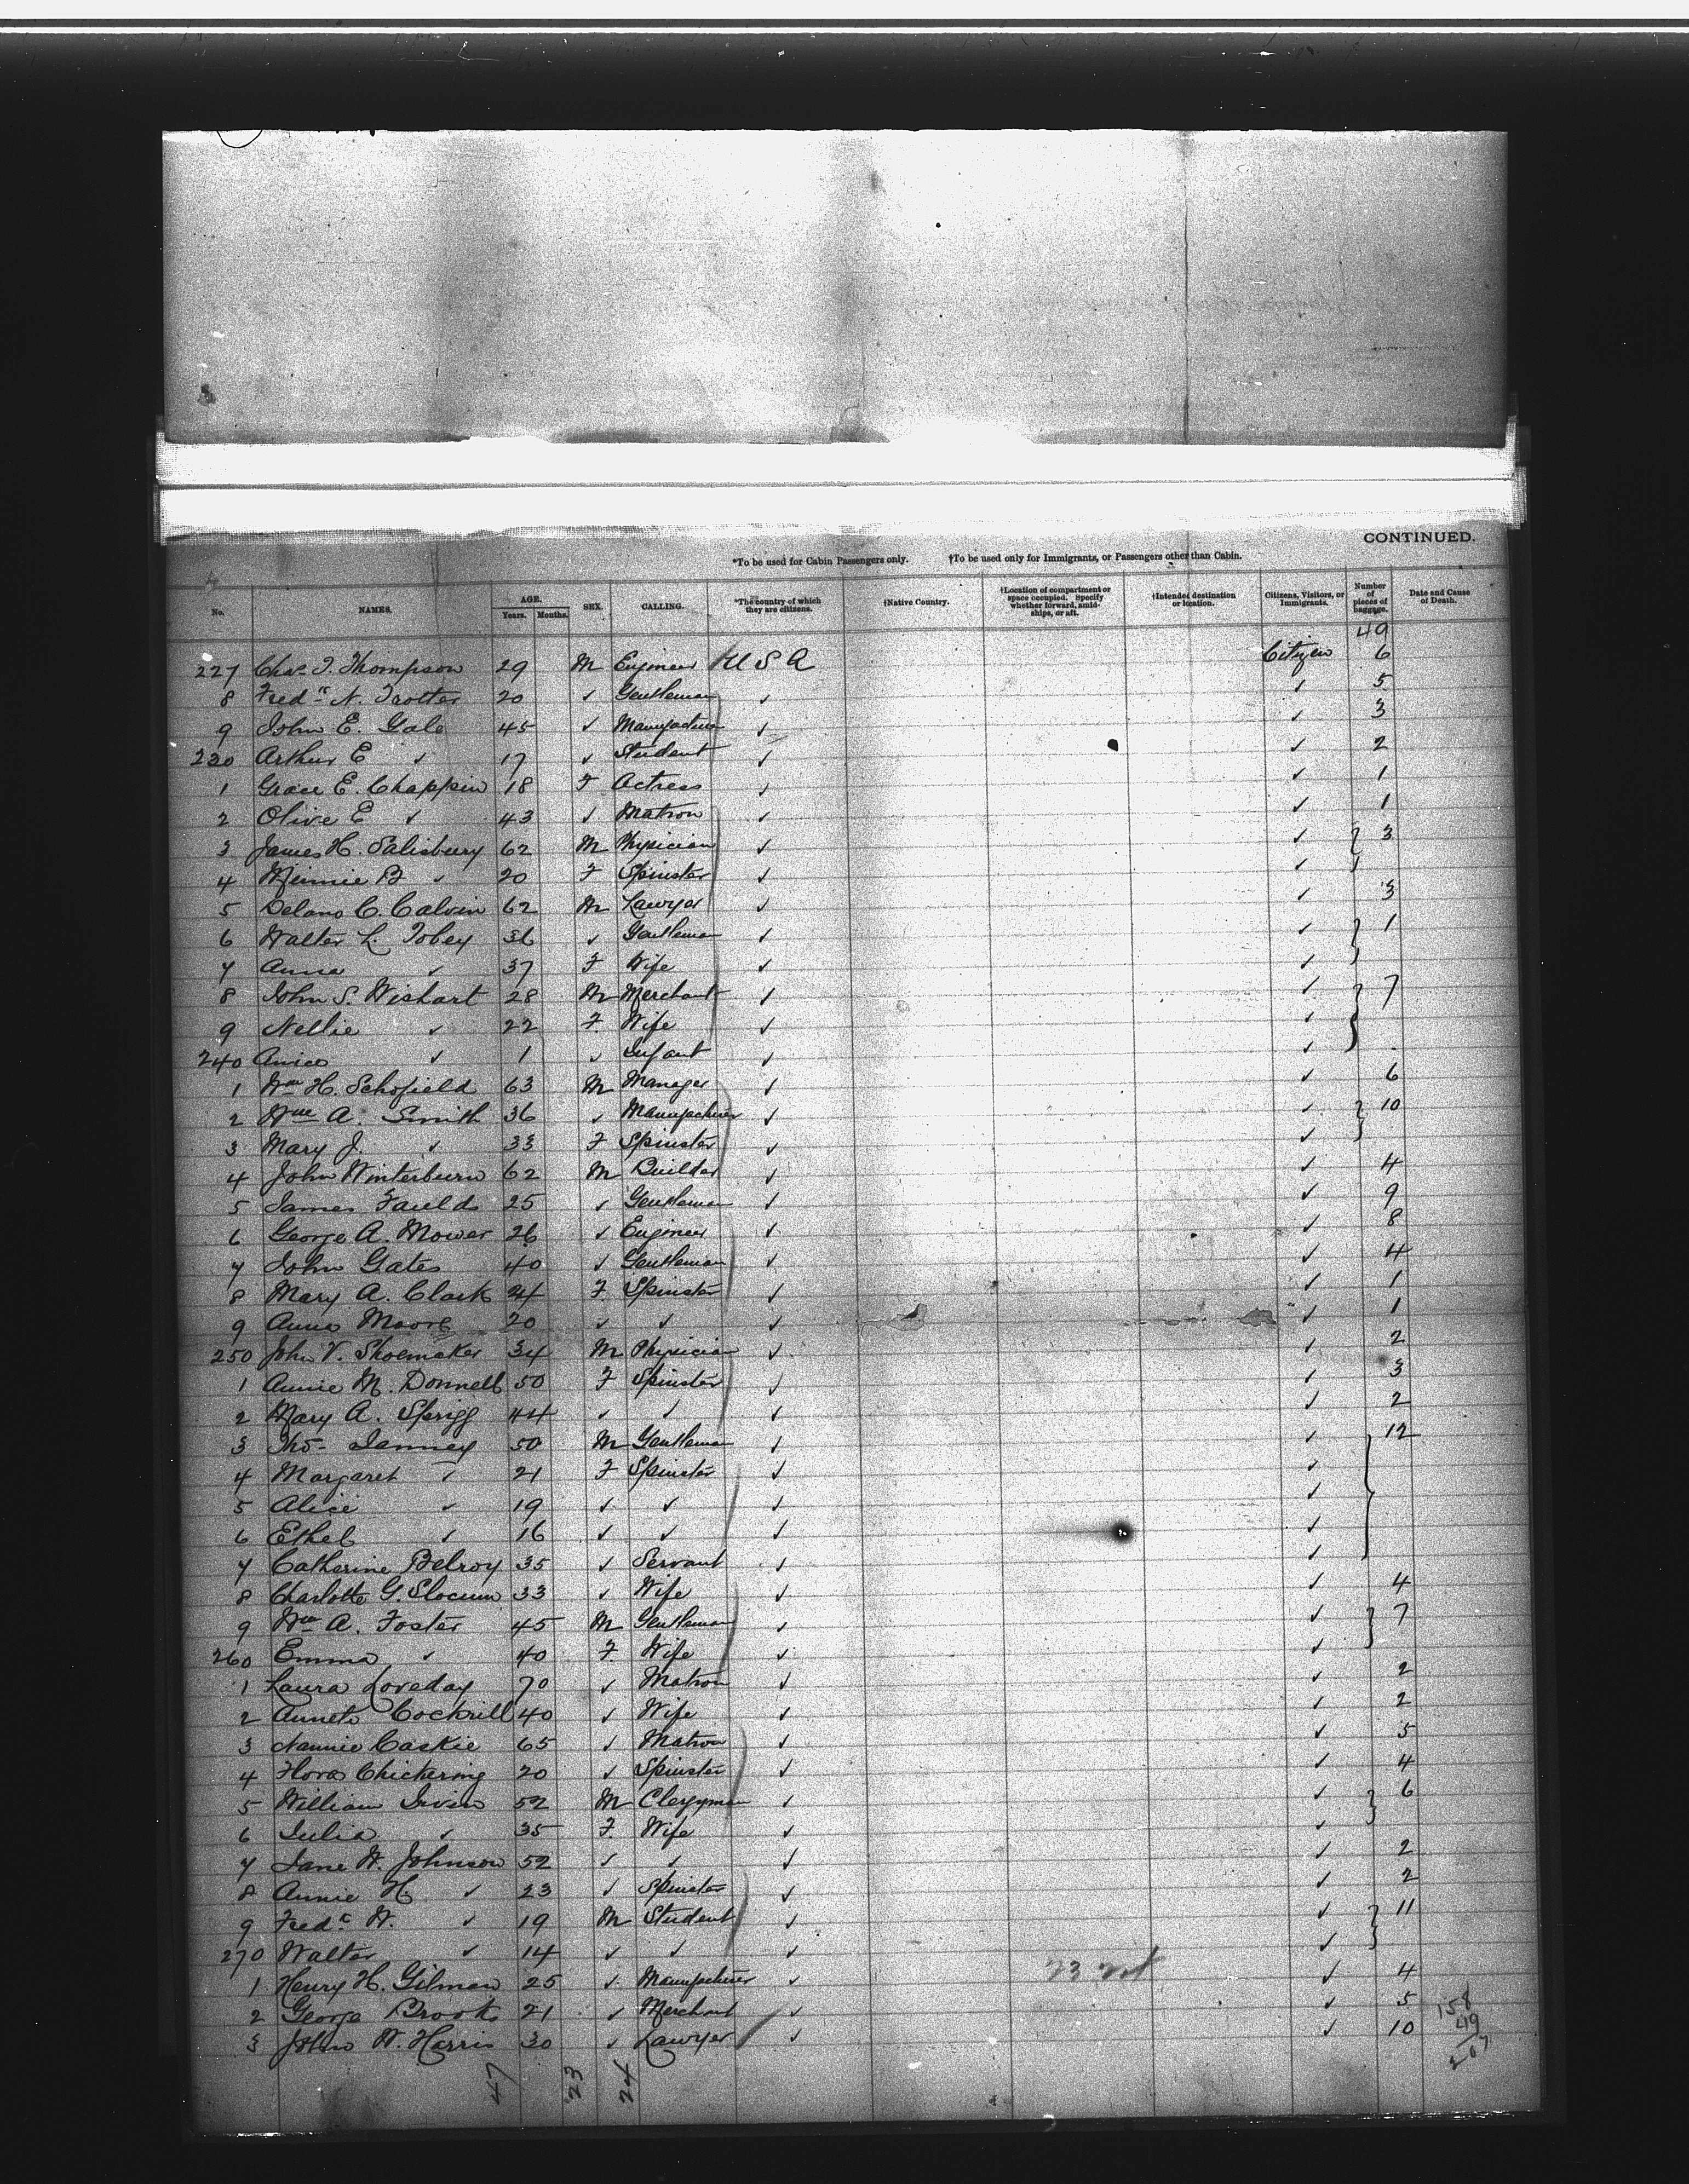 CONTINUED.
*To be used for Cabin Passengers only. †To be used only for Immigrants, or Passengers other than Cabin.
No. NAMES. AGE. Years. Months. SEX. CALLING. *The country of which they are citizens. †Native Country. †Location of compartment or space occupied. Specify whether forward, amidships, or aft. †Intended destination or location. Citizens, Visitors, or Immigrants. Number of pieces of baggage. Date and Cause of Death.
49
227 Chas. T. Thompson 29 M Engineer U S A Citizen 6
8 Fredk N. Trotter 20 ✓ Gentleman ✓ ✓ 5
9 John E. Gale 45 ✓ Manufacturer ✓ ✓ 3
230 Arthur E ✓ 17 ✓ Student ✓ ✓ 2
1 Grace E. Chappin 18 F Actress ✓ ✓ 1
2 Olive E ✓ 43 ✓ Matron ✓ ✓ 1
3 James H. Salisbury 62 M Physician ✓ ✓ 3
4 Minnie B ✓ 20 F Spinster ✓ ✓
5 Delano C. Calvin 62 M Lawyer ✓ ✓ 3
6 Walter L. Tobey 36 ✓ Gentleman ✓ ✓ 1
7 Anna ✓ 37 F Wife ✓ ✓
8 John S. Wishart 28 M Merchant ✓ ✓ 7
9 Nellie ✓ 22 F Wife ✓ ✓
240 ✓ 1 ✓ Infant ✓ ✓
1 Wm H. Schofield 63 M Manager ✓ ✓ 6
2 Wm A. Smith 36 ✓ Manufacturer ✓ ✓ 10
3 Mary J. ✓ 33 F Spinster ✓ ✓
4 John Winterburn 62 M Builder ✓ ✓ 4
5 James Faulds 25 ✓ Gentleman ✓ ✓ 9
6 George A. Mower 26 ✓ Engineer ✓ ✓ 8
7 John Gates 40 ✓ Gentleman ✓ ✓ 4
8 Mary A. Clark 24 F Spinster ✓ ✓ 1
9 Anna Moore 20 ✓ ✓ ✓ ✓ 1
250 John V. Shoemaker 34 M Physician ✓ ✓ 2
1 Annie M. Donnell 50 F Spinster ✓ ✓ 3
2 Mary A. Sprigg 44 ✓ ✓ ✓ ✓ 2
3 Thos Janney 50 M Gentleman ✓ ✓ 12
4 Margaret ✓ 21 F Spinster ✓ ✓
5 Alice ✓ 19 ✓ ✓ ✓ ✓
6 Ethel ✓ 16 ✓ ✓ ✓ ✓
7 Catherine Belroy 35 ✓ Servant ✓ ✓
8 Charlotte G. Slocum 33 ✓ Wife ✓ ✓ 4
9 Wm A. Foster 45 M Gentleman ✓ ✓ 7
260 Emma ✓ 40 F Wife ✓ ✓
1 Laura Loveday 70 ✓ Matron ✓ ✓ 2
2 Cockrill 40 ✓ Wife ✓ ✓ 2
3 Nannie Caskie 65 ✓ Matron ✓ ✓ 5
4 Flora Chickering 20 ✓ Spinster ✓ ✓ 4
5 William Irvin 52 M Clergyman ✓ ✓ 6
6 Julia ✓ 35 F Wife ✓ ✓
7 Jane W. Johnson 52 ✓ ✓ ✓ ✓ 2
8 Annie H ✓ 23 ✓ Spinster ✓ ✓ 2
9 Fredc W. ✓ 19 M Student ✓ ✓ 11
270 Walter ✓ 14 ✓ ✓ ✓ ✓
1 Henry H. Gilman 25 ✓ Manufacturer ✓ 23 ✓ 4
2 George Brooks 21 ✓ Merchant ✓ ✓ 5
3 John W. Harris 30 ✓ Lawyer ✓ ✓ 10
158
49
207
47 23 24